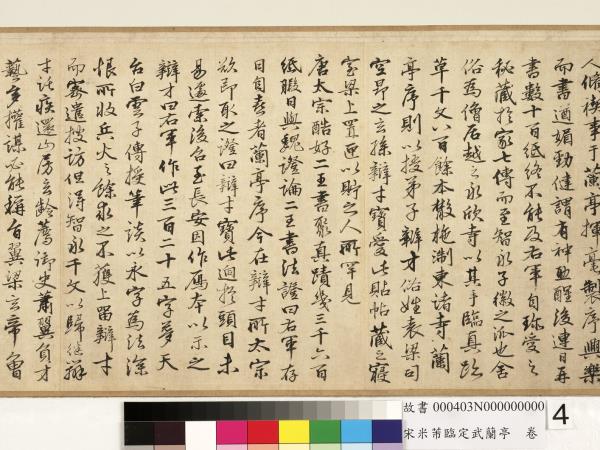 人脩禊事于蘭亭揮毫製序興樂
而書遒媚勁健謂有神助醒後連日再
書數十百紙終不能及右軍自珍愛之
秘藏於家七傳而至智永子徽之派也舍
俗為僧居越之永欣寺以其手臨真跡
草千文八百餘本散施淛東諸寺蘭
亭序則以授弟子辯才俗姓袁梁司
空昂之玄孫辯才寶愛此帖藏之寢
室梁上置匣以貯之人所罕見
唐太宗酷好二王書蓄真蹟幾三千六百
紙暇日與魏證論二王書法證曰右軍存
日自喜者蘭亭序今在辯才所太宗
欲即取之證曰辯才寶此逈於頭目未
易遽索後召至長安因作贋本以示之
辯才曰右軍作此三百二十五字夢天
台白雲子傳授筆訣以永字為法深
恨所收兵火之餘求之不獲上留辯才
而密遣搜訪但得智永千文以歸繼辯
才託疾還山房玄齡薦御史蕭翼負才
藝多權謀必能稱旨翼梁元帝曾
故書 000403N000000000
宋米芾臨定武蘭亭 卷
4